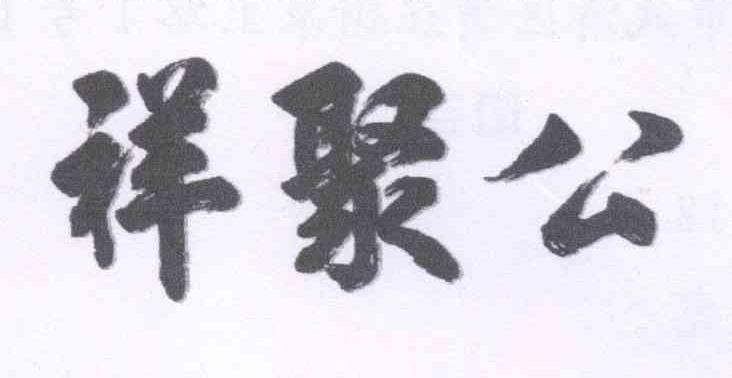 祥聚公